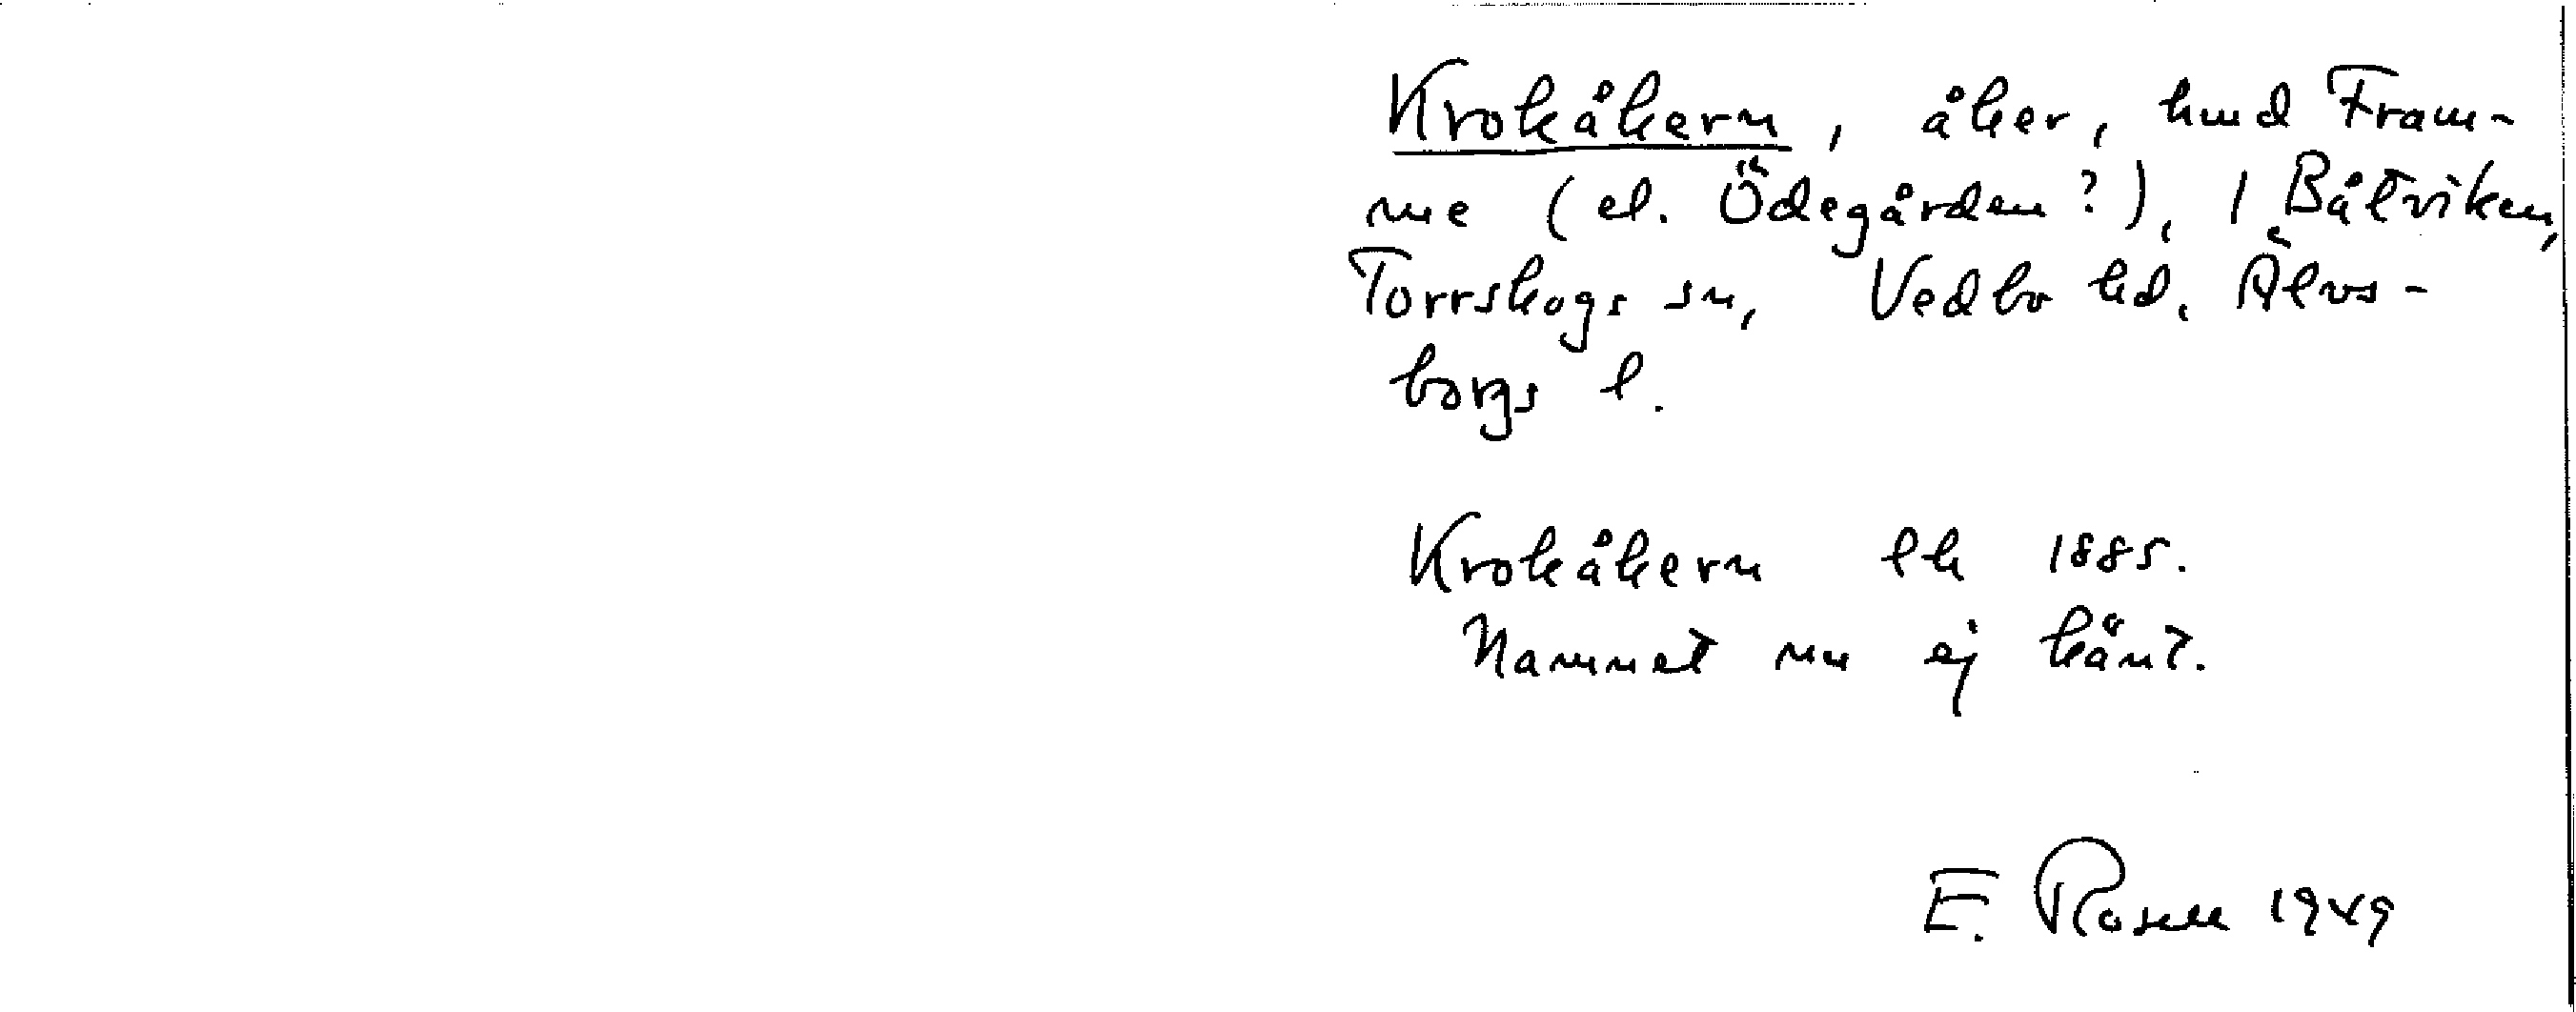 Krokåkern, åker, hmd Fram-
me (el. Ödegården?), 1 Båtviken,
Torrskogs sn, Vedbo hd, Älvs-
borgs l.
Krokåkern lk 1885.
Namnet nu ej känt.
E. Rosell 1949